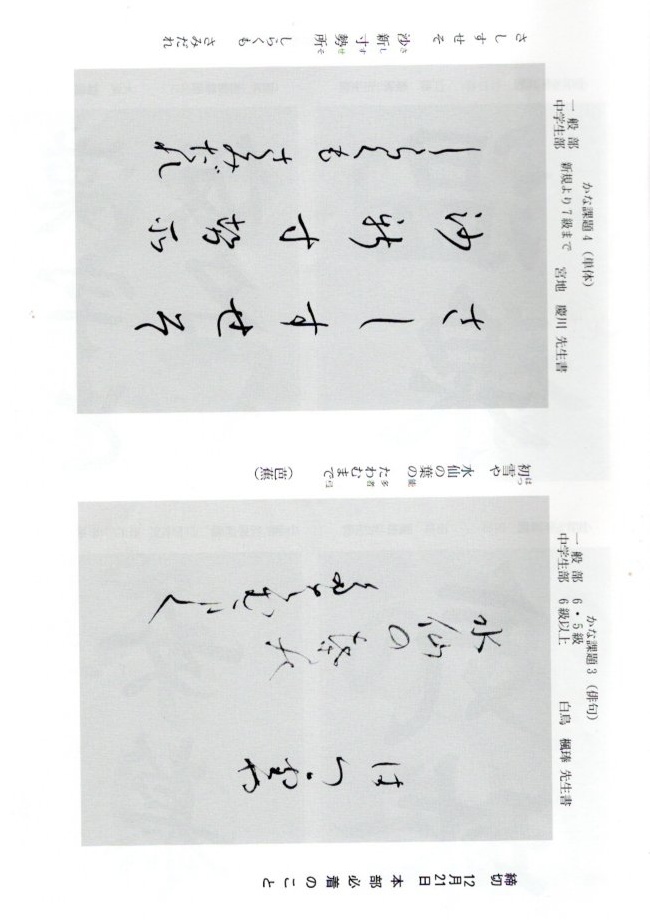 締切 12月21日 本部必着のこと
かな課題3（俳句）
一般部 6・5級
中学生部 6級以上
白鳥 楓琫 先生書
はつ雪や
水仙の葉能
初雪や
はつ
水仙の葉の
能
たわむまで
多者
（芭蕉）
かな課題4（単体）
一般部
中学生部
新規より7級まで
宮地 慶川 先生書
さしすせそ
沙新寸勢所
しらくも さみだれ
さしすせそ
沙新寸勢所
さしすせそ
しらくも さみだれ